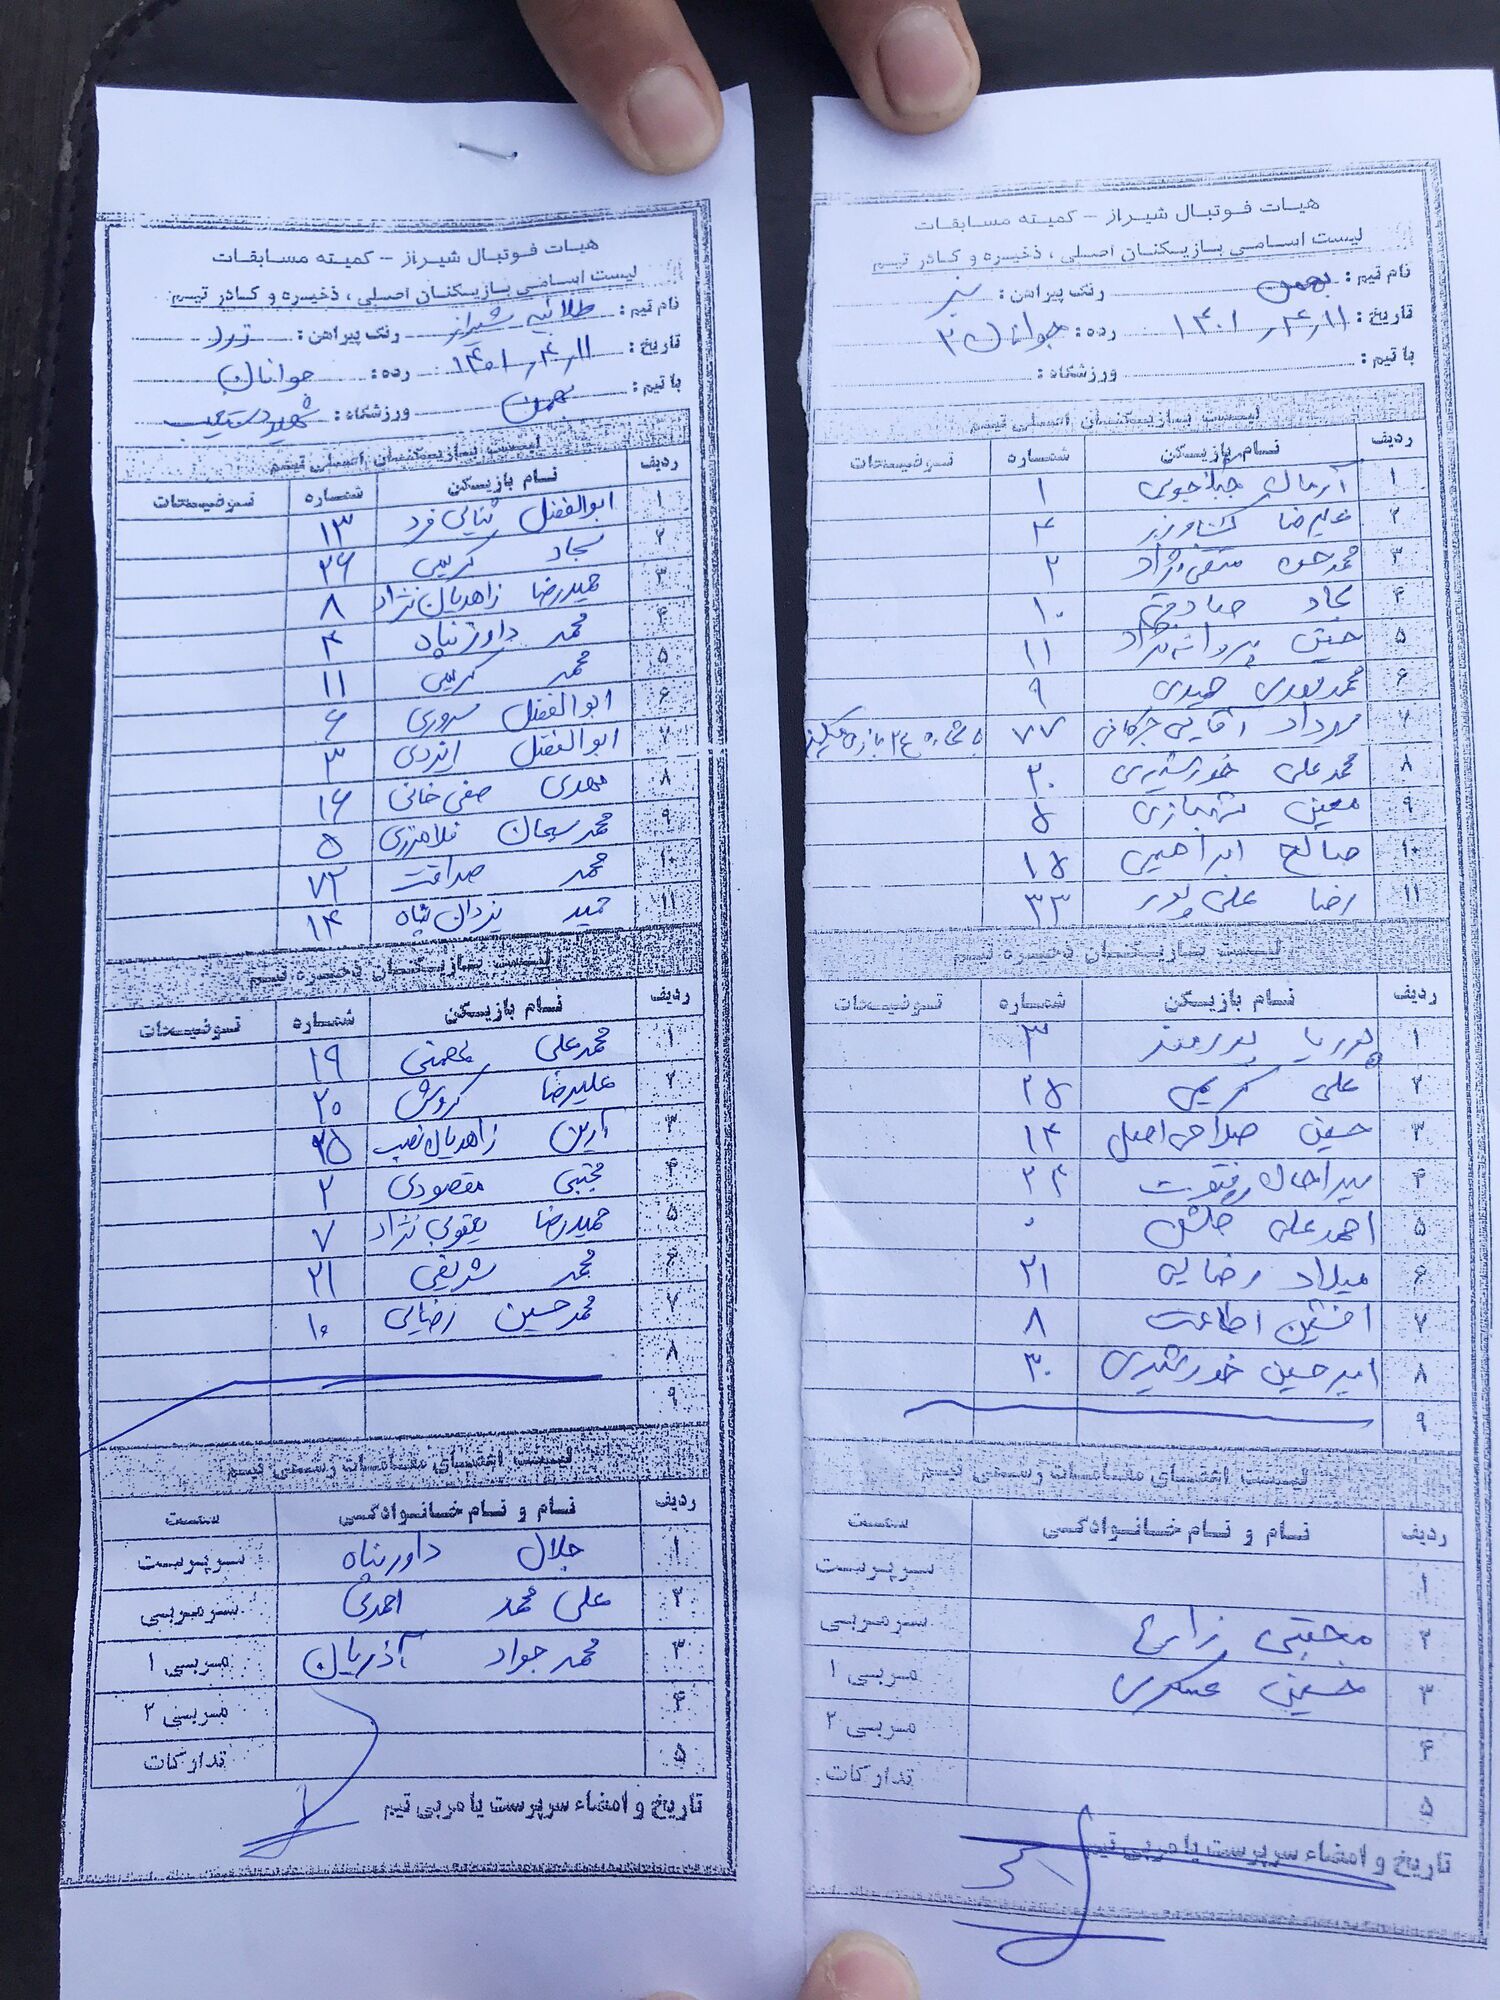 هیات فوتبال شیراز - کمیته مسابقات
لیست اسامی بازیکنان اصلی ، ذخیره و کادر تیم
نام تیم : بهمن رنگ پیراهن :
تاریخ : ۱۴۰۱٫۴٫۱۱ رده : جوانان ۲
با تیم : ورزشگاه :
لیست بازیکنان اصلی تیم
ردیف نام بازیکن شماره توضیحات
۱ آرمان ۱
۲ علیرضا کشاورز ۴
۳ ۲
۴ سجاد صادقی ۱۰
۵ پروانه نژاد ۱۱
۶ محمدمهدی حیدری ۹
۷ مهرداد آقایی ۷۷
۸ محمدعلی خورشیدی ۲۰
۹ معین شهبازی ۵
۱۰ صالح ابراهیمی ۱۵
۱۱ رضا علی پور ۳۳
لیست بازیکنان ذخیره تیم
ردیف نام بازیکن شماره توضیحات
۱ پوریا پورمند ۳
۲ علی کریمی ۲۵
۳ حسین صلاحی اصل ۱۴
۴ ۲۴
۵ احمدعلی ۰
۶ میلاد رضایی ۲۱
۷ افشین اطاعت ۸
۸ امیرحسین خورشیدی ۳۰
۹
لیست اعضای مقامات رسمی تیم
ردیف نام و نام خانوادگی سمت
۱ سرپرست
۲ مجتبی زارع سرمربی
۳ حسین عسکری مربی ۱
۴ مربی ۲
۵ تدارکات
تاریخ و امضاء سرپرست یا مربی تیم
هیات فوتبال شیراز - کمیته مسابقات
لیست اسامی بازیکنان اصلی ، ذخیره و کادر تیم
نام تیم : طلائیه شیراز رنگ پیراهن : زرد
تاریخ : ۱۴۰۱٫۴٫۱۱ رده : جوانان
با تیم : بهمن ورزشگاه : شهید دستغیب
لیست بازیکنان اصلی تیم
ردیف نام بازیکن شماره توضیحات
۱ ابوالفضل ثنائی فرد ۱۳
۲ سجاد کریمی ۲۶
۳ حمیدرضا زاهدیان نژاد ۸
۴ محمد داورپناه ۴
۵ محمد کریمی ۱۱
۶ ابوالفضل سروری ۶
۷ ابوالفضل ایزدی ۳
۸ مهدی صفی خانی ۱۶
۹ محمدسبحان ۵
۱۰ محمد صداقت ۷۲
۱۱ حمید یزدان پناه ۱۴
لیست بازیکنان ذخیره تیم
ردیف نام بازیکن شماره توضیحات
۱ محمدعلی ۱۹
۲ علیرضا کروش ۲۰
۳ آرین زاهدیان نصب ۲۵
۴ مجتبی مقصودی ۲
۵ حمیدرضا یعقوبی نژاد ۷
۶ محمد شریفی ۲۱
۷ محمدحسین رضایی ۱۰
۸
۹
لیست اعضای مقامات رسمی تیم
ردیف نام و نام خانوادگی سمت
۱ جلال داورپناه سرپرست
۲ علی محمد احمدی سرمربی
۳ محمدجواد آذریان مربی ۱
۴ مربی ۲
۵ تدارکات
تاریخ و امضاء سرپرست یا مربی تیم